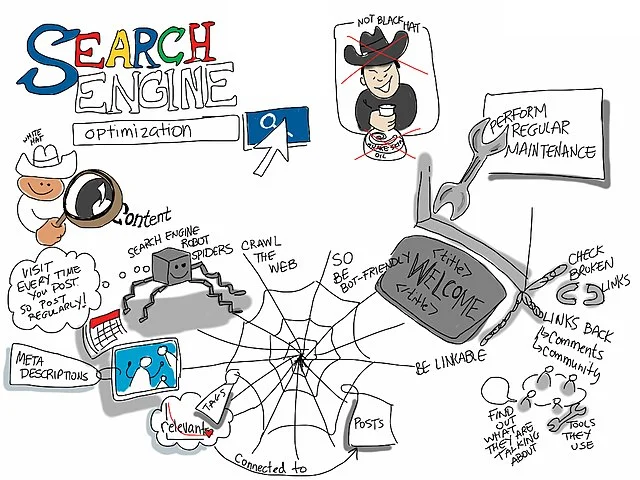 SEARCH
ENGINE
optimization
NOT BLACK HAT
SNAKE
OIL
PERFORM
REGULAR
MAINTENANCE
WHITE
HAT
Content
SEARCH ENGINE
ROBOT
SPIDERS
CRAWL
THE
WEB
SO
BE
BOT-FRIENDLY
<title>
WELCOME
<title>
CHECK
BROKEN
LINKS
VISIT
EVERY TIME
YOU POST
SO POST
REGULARLY!
LINKS BACK
Comments
Community
META
DESCRIPTIONS
BE LINKABLE
TAGS
relevant
POSTS
Connected to
FIND
OUT
WHAT
THEY ARE
TALKING
ABOUT
TOOLS
THEY
USE